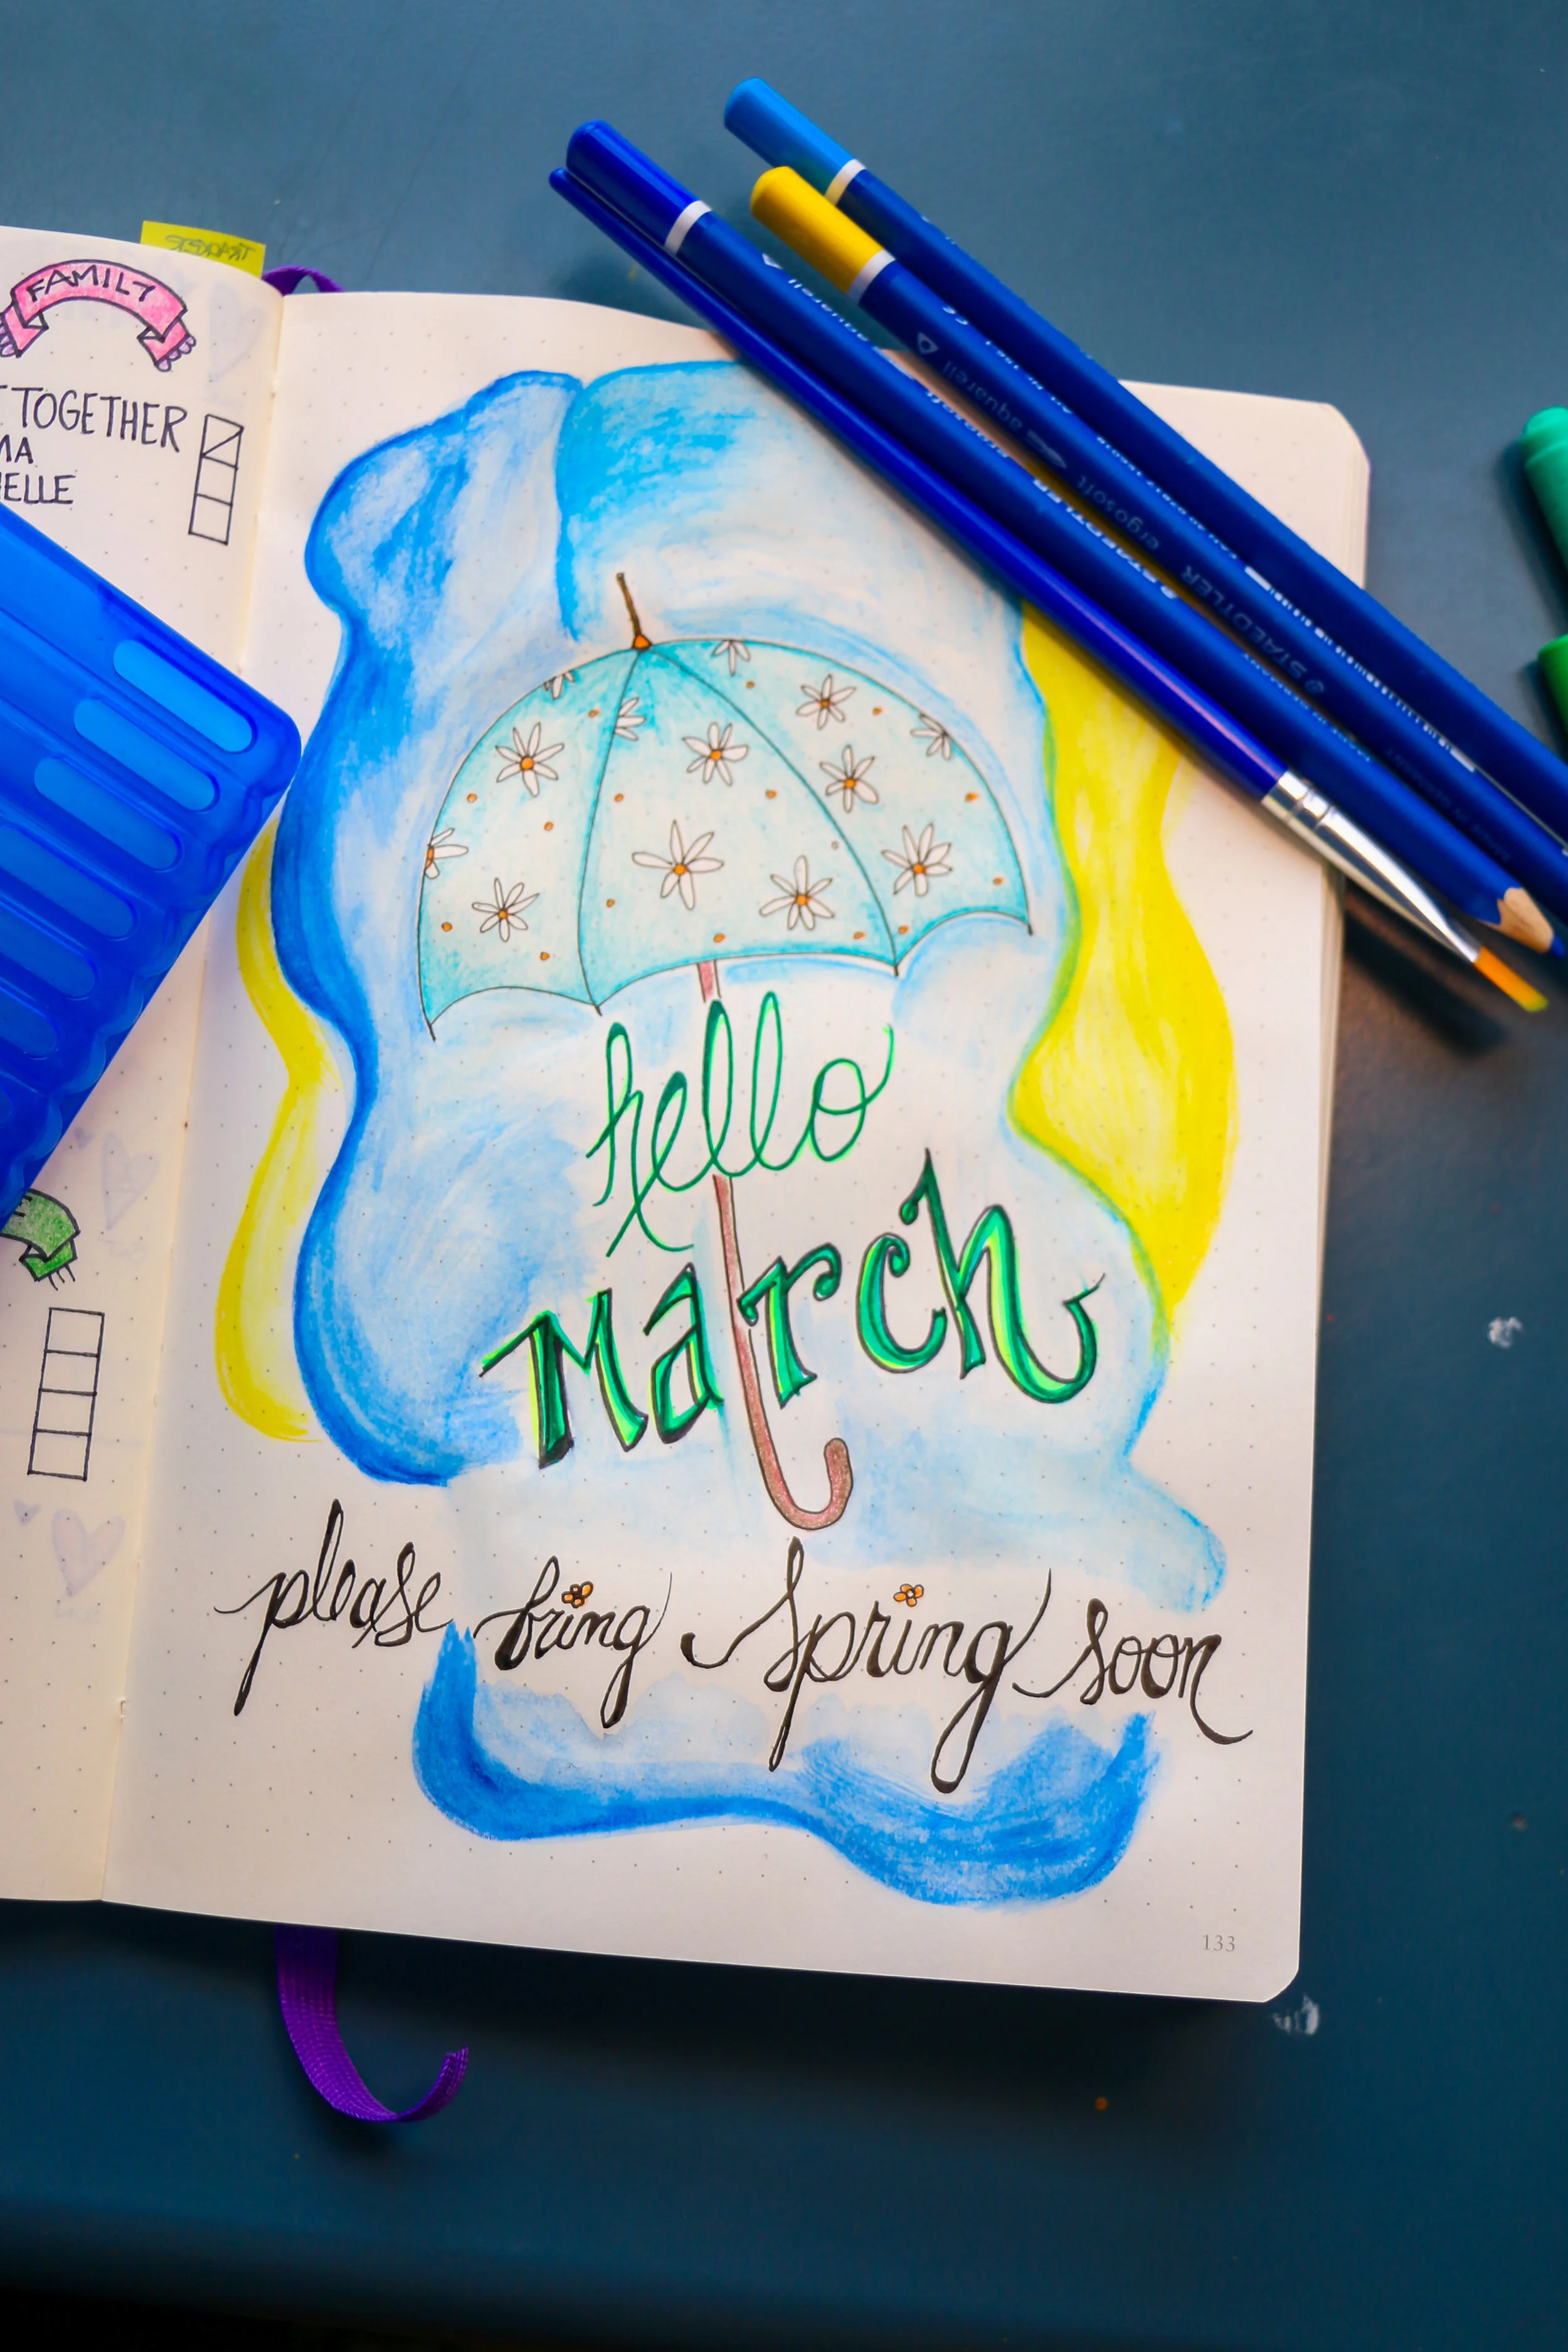 FAMILY
T TOGETHER
MA
IELLE
hello
March
please bring Spring soon
133
aquarell
aquarell
ergosoft
STAEDTLER
STAEDTLER